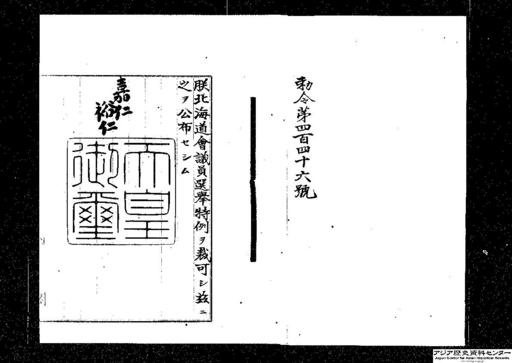 勅令第四百四十六號
朕北海道會議員選擧特例ヲ裁可シ茲ニ
之ヲ公布セシム
嘉仁
裕仁
天皇
御璽
アジア歴史資料センター
Japan Center for Asian Historical Records